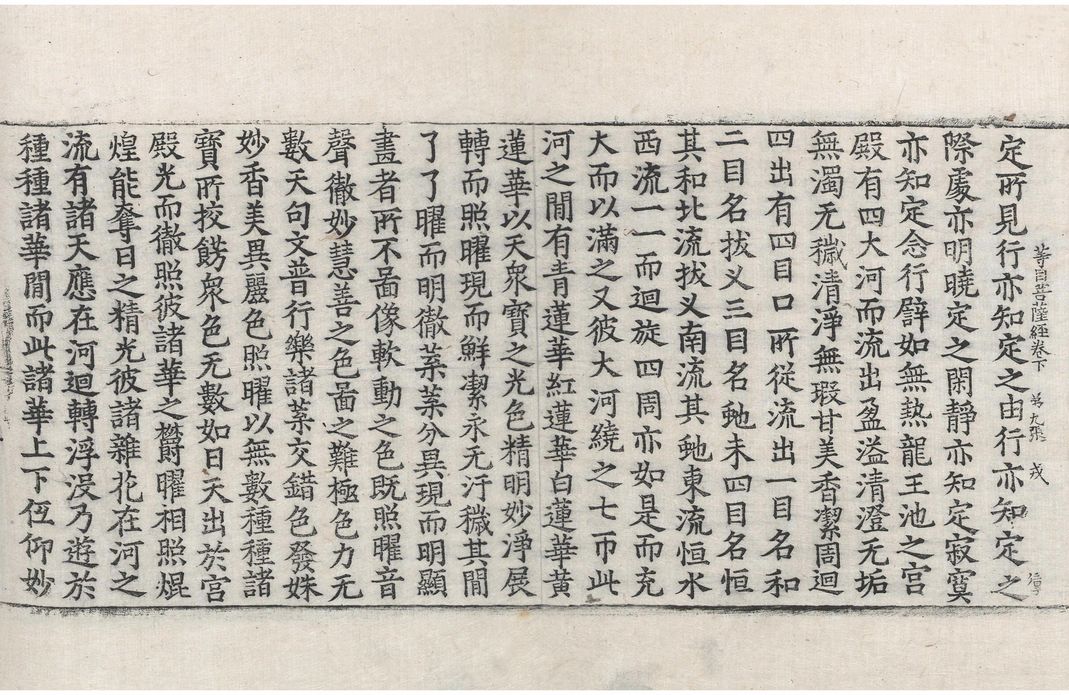 等目菩薩經卷下 第九張 戎
定所見行亦知定之由行亦知定之
際處亦明曉定之閑靜亦知定寂寞
亦知定念行譬如無熱龍王池之宮
殿有四大河而流出盈溢清澄无垢
無濁无穢清淨無瑕甘美香潔周迴
四出有四目口所從流出一目名和
二目名拔义三目名虵未四目名恒
其和北流拔义南流其虵東流恒水
西流一一而迴旋四周亦如是而充
大而以滿之又彼大河繞之七帀此
河之閒有青蓮華紅蓮華白蓮華黃
蓮華以天衆寶之光色精明妙淨展
轉而照曜現而鮮潔永无汙穢其閒
了了曜而明徹菜菜分異現而明顯
畫者所不啚像軟動之色既照曜音
聲徹妙慧善之色啚之難極色力无
數天句文普行樂諸菜交錯色發姝
妙香美異麗色照曜以無數種種諸
寶所挍餝衆色无數如日天出於宮
殿光而徹照彼諸華之欝曜相照焜
煌能奪日之精光彼諸雜花在河之
流有諸天應在河迴轉浮没乃遊於
種種諸華閒而此諸華上下伍仰妙